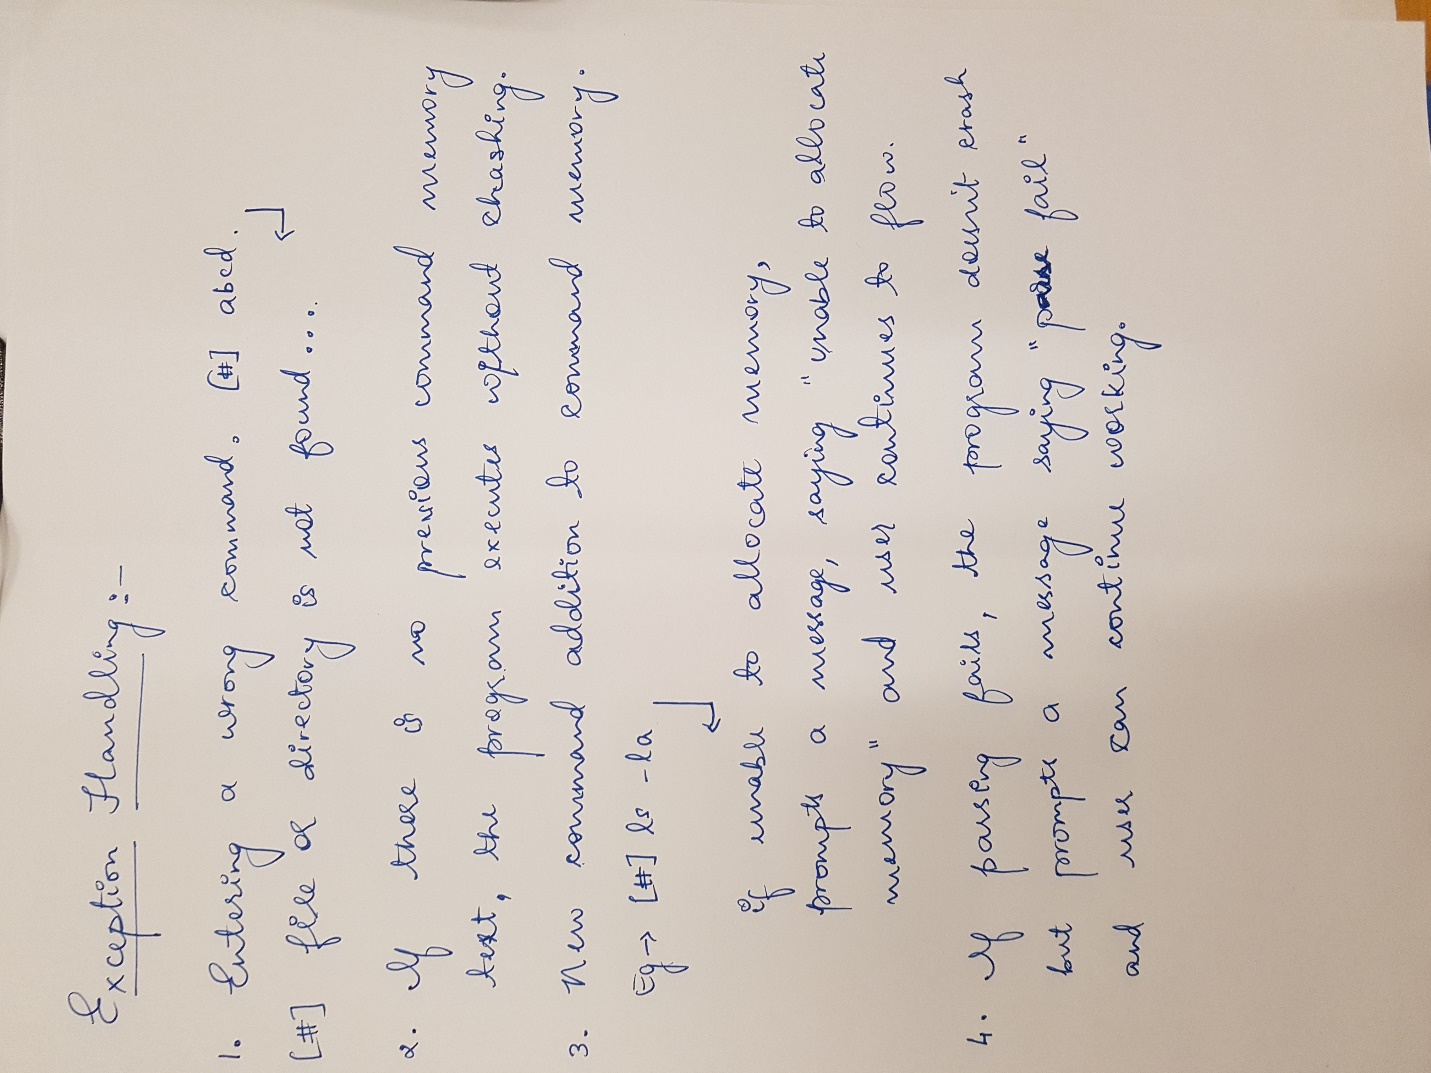 Exception Handling :-
1. Entering a wrong command. [#] abcd. ↵
[#] file or directory is not found....
2. If there is no previous command memory
text, the program executes without chashing.
3. New command addition to command memory.
Eg → [#] ls -la ↵
if unable to allocate memory,
prompts a message, saying "unable to allocate
memory" and user continues to flow.
4. If parsing fails, the program doesn't crash
but prompts a message saying "parse fail"
and user can continue working.